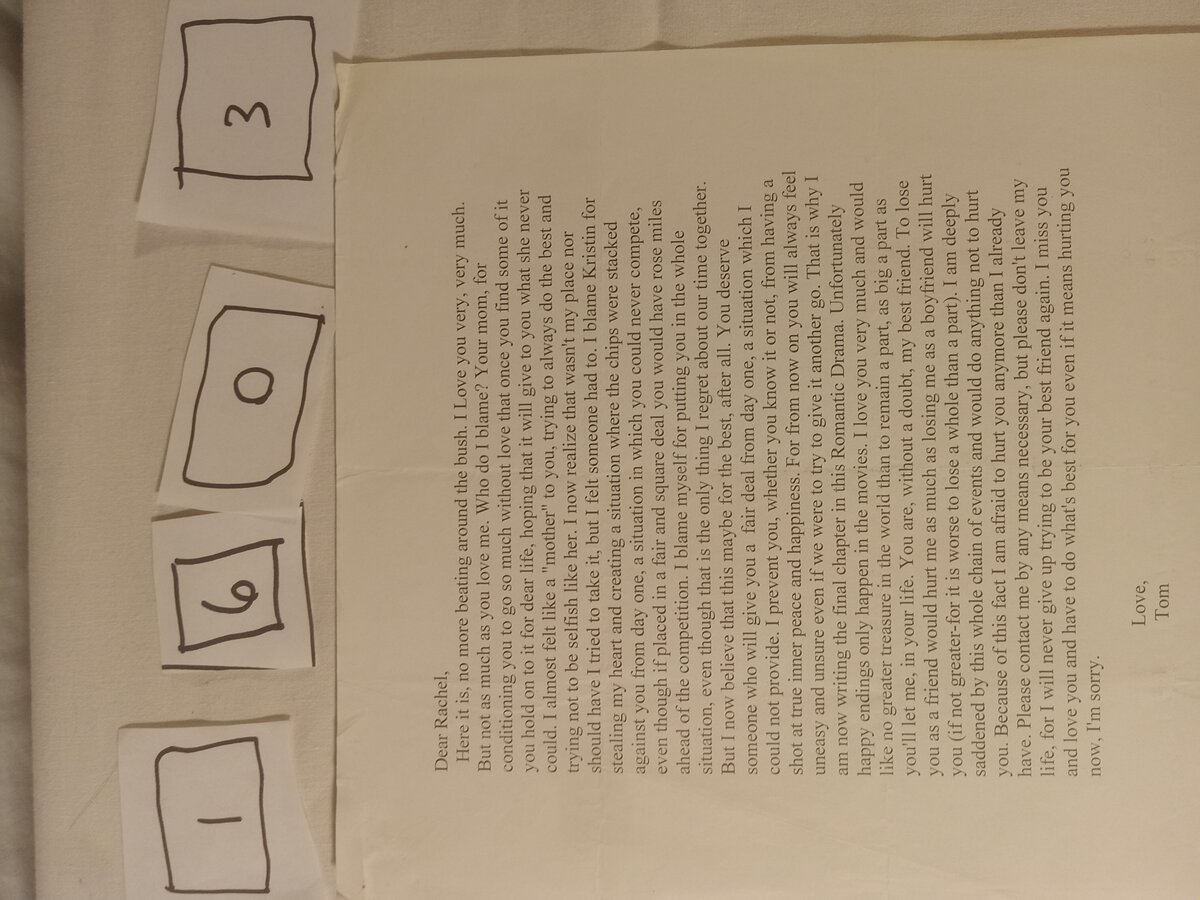 1
6
0
3
Dear Rachel,
Here it is, no more beating around the bush. I Love you very, very much.
But not as much as you love me. Who do I blame? Your mom, for
conditioning you to go so much without love that once you find some of it
you hold on to it for dear life, hoping that it will give to you what she never
could. I almost felt like a "mother" to you, trying to always do the best and
trying not to be selfish like her. I now realize that wasn't my place nor
should have I tried to take it, but I felt someone had to. I blame Kristin for
stealing my heart and creating a situation where the chips were stacked
against you from day one, a situation in which you could never compete,
even though if placed in a fair and square deal you would have rose miles
ahead of the competition. I blame myself for putting you in the whole
situation, even though that is the only thing I regret about our time together.
But I now believe that this maybe for the best, after all. You deserve
someone who will give you a fair deal from day one, a situation which I
could not provide. I prevent you, whether you know it or not, from having a
shot at true inner peace and happiness. For from now on you will always feel
uneasy and unsure even if we were to try to give it another go. That is why I
am now writing the final chapter in this Romantic Drama. Unfortunately
happy endings only happen in the movies. I love you very much and would
like no greater treasure in the world than to remain a part, as big a part as
you'll let me, in your life. You are, without a doubt, my best friend. To lose
you as a friend would hurt me as much as losing me as a boyfriend will hurt
you (if not greater-for it is worse to lose a whole than a part). I am deeply
saddened by this whole chain of events and would do anything not to hurt
you. Because of this fact I am afraid to hurt you anymore than I already
have. Please contact me by any means necessary, but please don't leave my
life, for I will never give up trying to be your best friend again. I miss you
and love you and have to do what's best for you even if it means hurting you
now, I'm sorry.
Love,
Tom